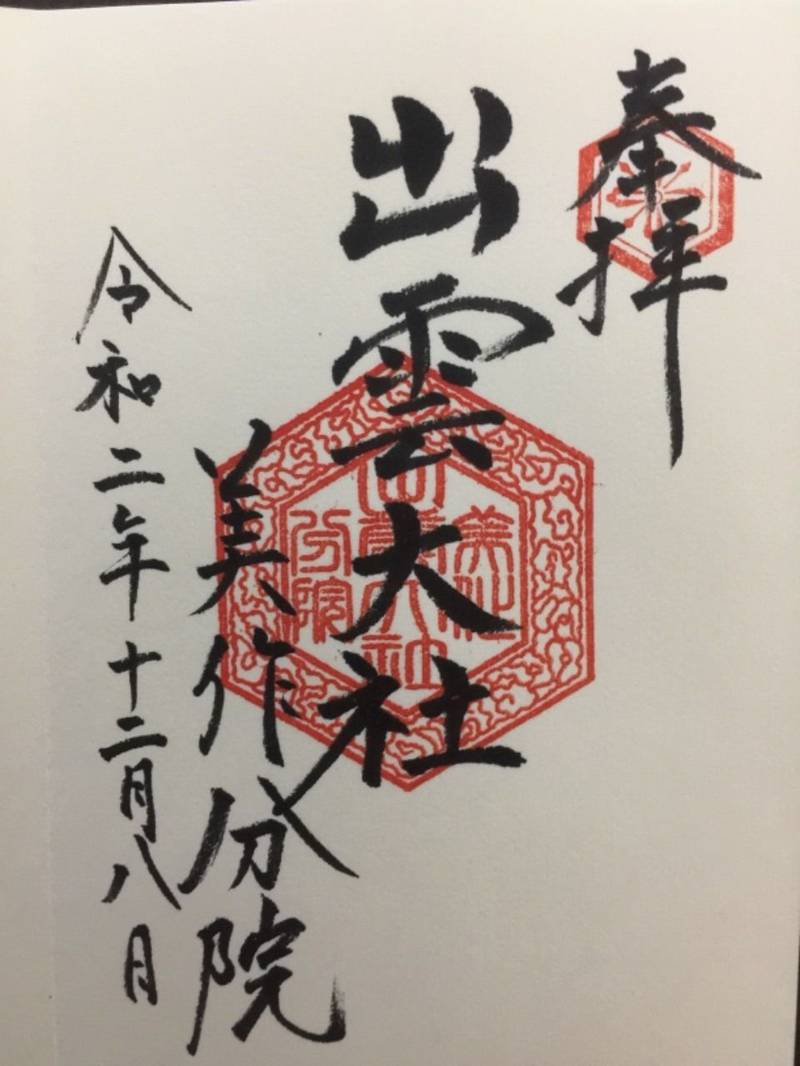 奉拝
出雲大社
美作分院
令和二年十二月八日
美作
出雲大社
分院